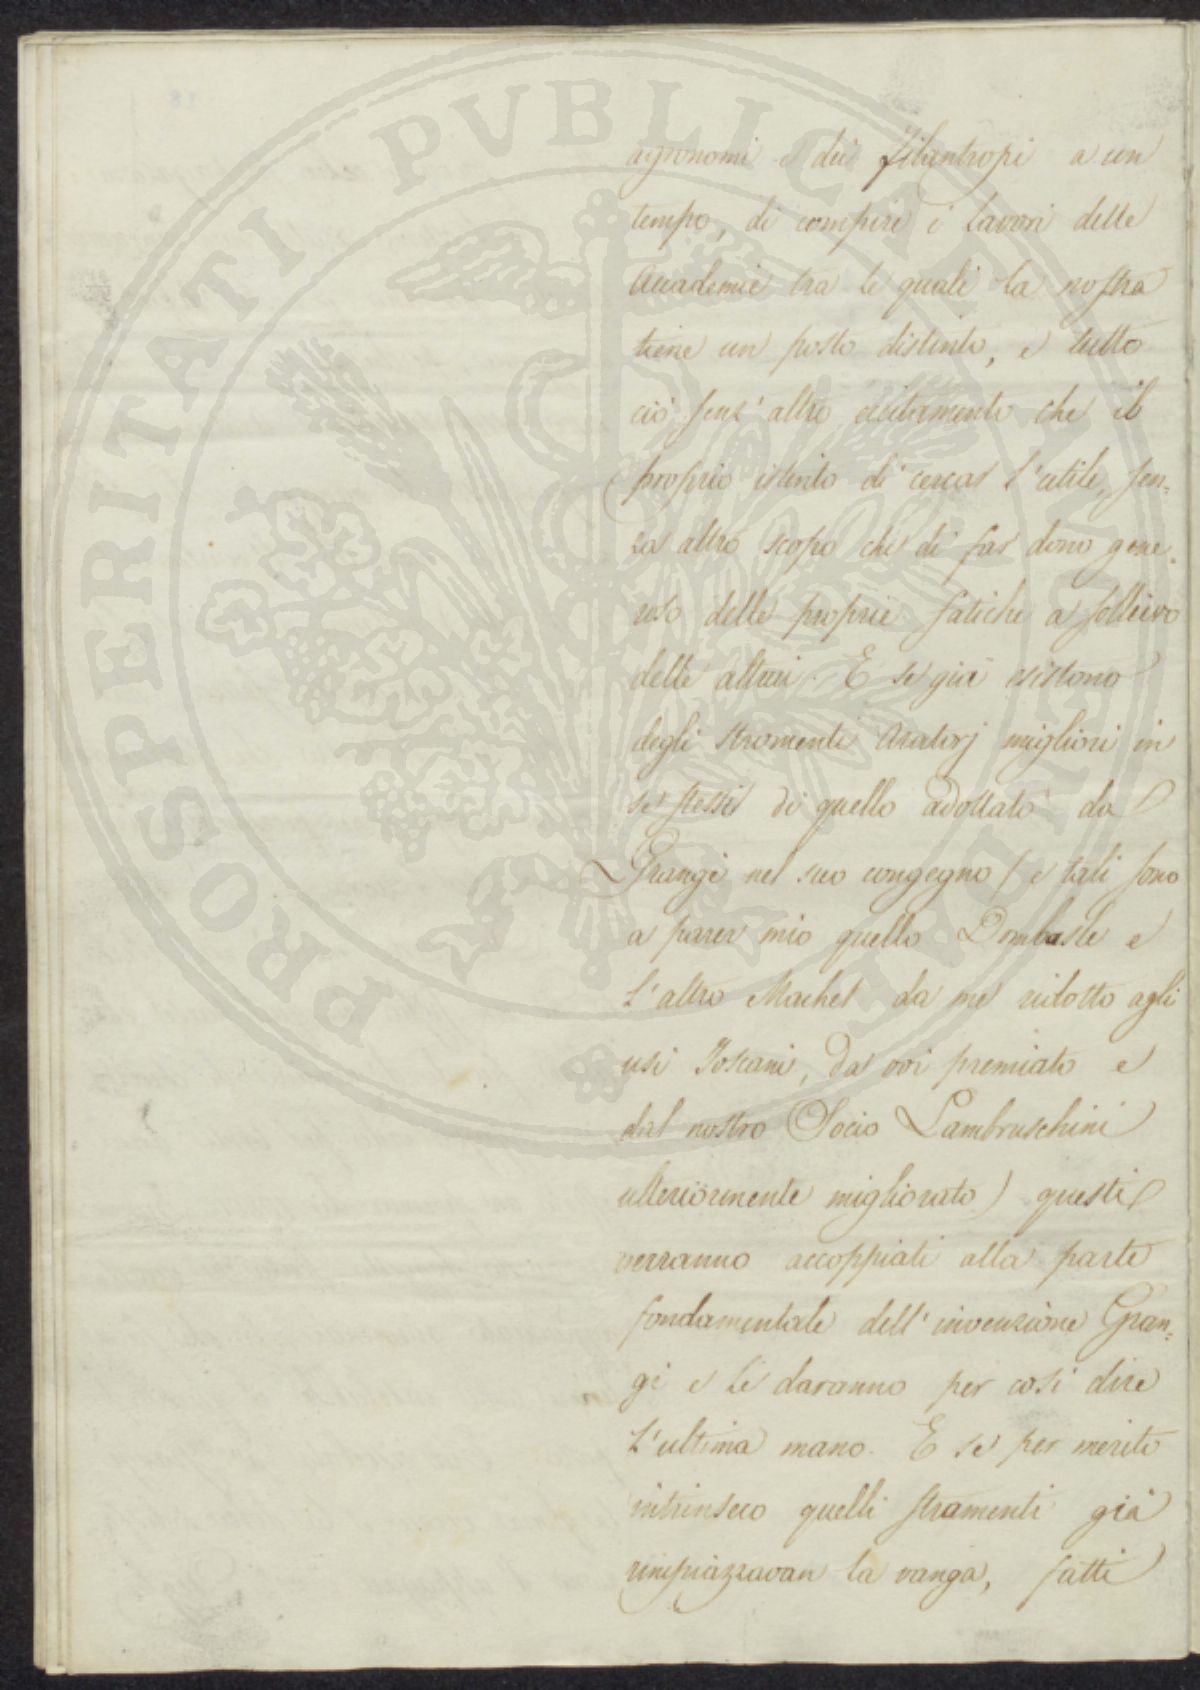 PROSPERITATI PVBLICAE AVGENDAE
agronomi e dei filantropi a un
tempo, di compire i lavori delle
Accademie tra le quali la nostra
tiene un posto distinto, e tutto
ciò senz'altro eccitamento che il
proprio istinto di cercar l'utile, sen=
za altro scopo che di far dono gene=
roso delle proprie fatiche a sollievo
delle altrui. E se già esistono
degli stromenti aratorj migliori in
se stessi di quello adottato da
Grangè nel suo congegno (e tali sono
a parer mio quello Dombasle e
l'altro Machet da me ridotto agli
usi Toscani, da voi premiato e
dal nostro Socio Lambruschini
ulteriormente migliorato) questi
verranno accoppiati alla parte
fondamentale dell'invenzione Gran=
gè e le daranno per così dire
l'ultima mano. E se per merito
intrinseco quelli stramenti già
rimpiazzavan la vanga, fatti